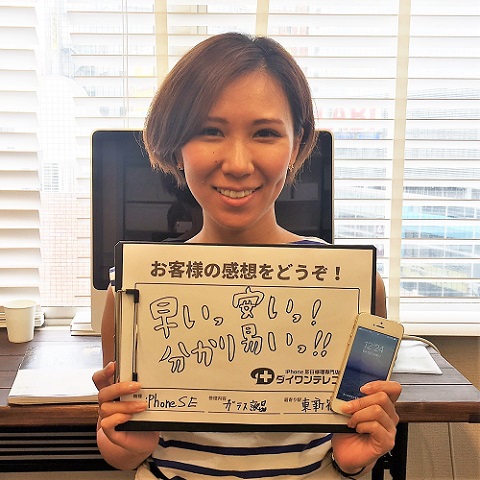 お客様の感想をどうぞ！
早いっ 安いっ!
分かり易いっ!!
iPhone即日修理専門店
ダイワンテレコ
機種 iPhone SE
修理内容 ガラス液晶
最寄り駅 東新宿
12:24